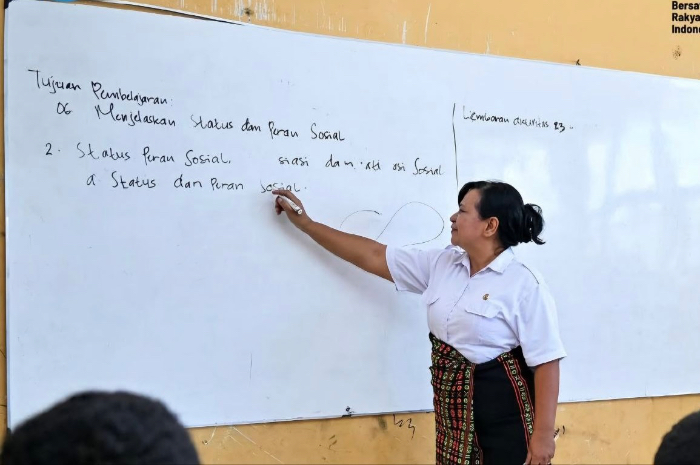 Tujuan Pembelajaran:
06 Menjelaskan Status dan Peran Sosial
2. Status Peran Sosial. siasi dam asi Sosial
a. Status dan Peran Sosial.
Lembaran aktivitas 23
Bersa
Rakya
Indone